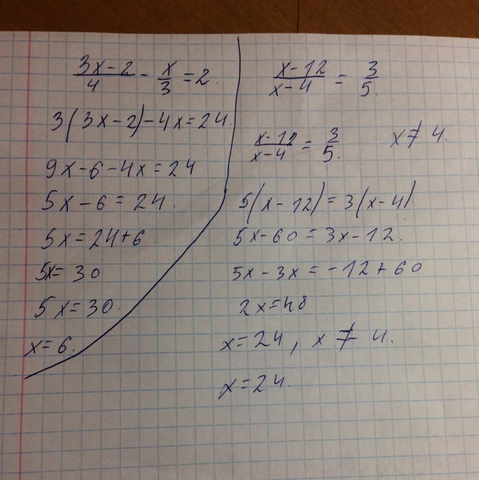 (3x-2)/4 - x/3 = 2.
3(3x-2)-4x=24.
9x-6-4x=24
5x-6=24.
5x=24+6
5x=30
5x=30.
x=6.
(x-12)/(x-4) = 3/5.
(x-12)/(x-4) = 3/5. x≠4.
5(x-12)=3(x-4)
5x-60=3x-12.
5x-3x=-12+60
2x=48
x=24, x≠4.
x=24.